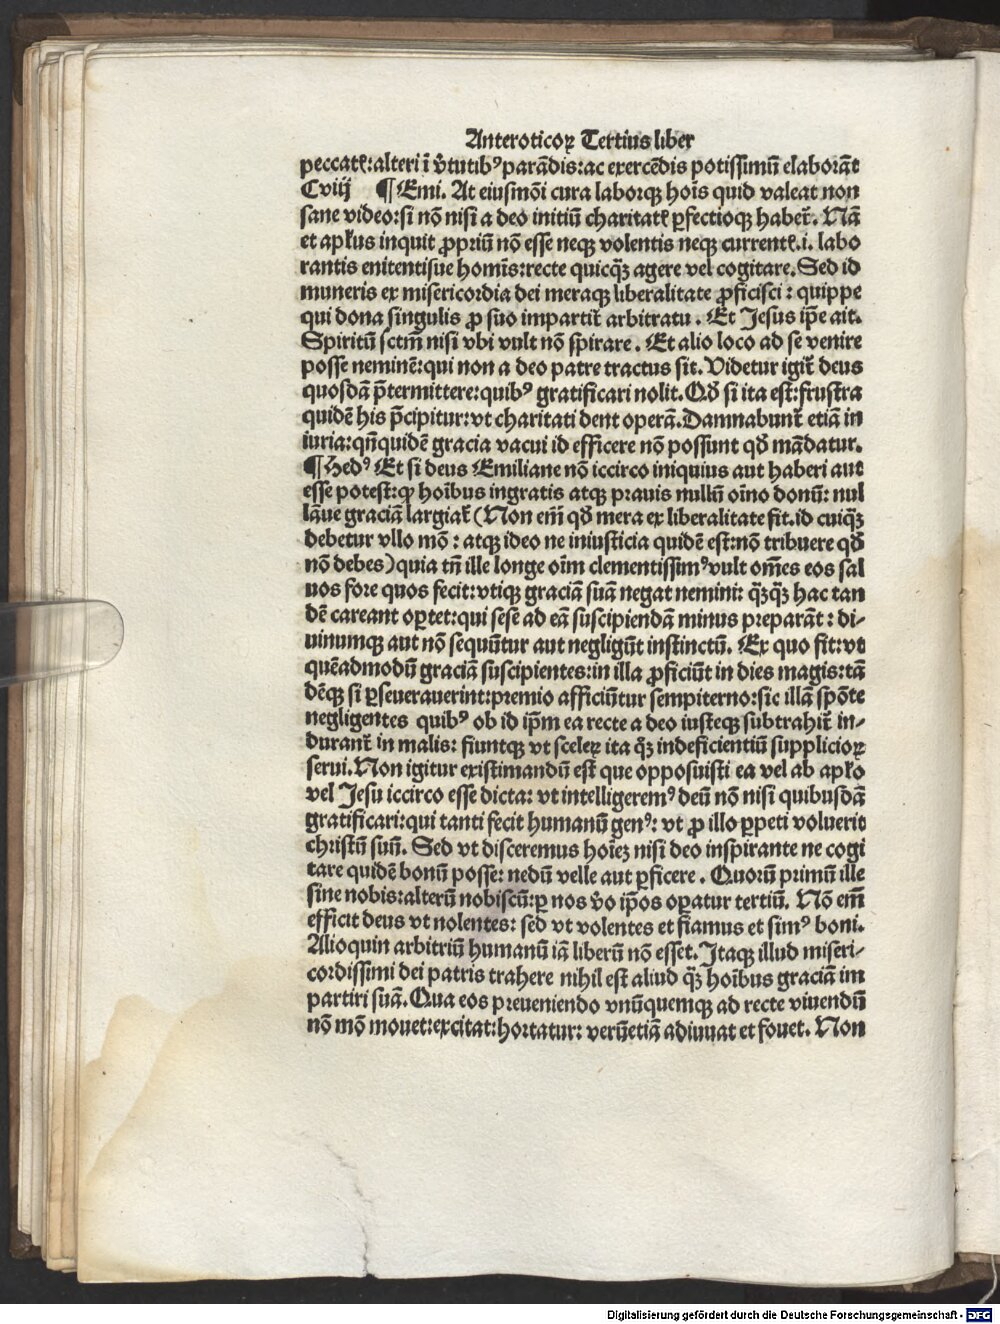 Anteroticoꝝ Tertius liber
peccatꝭ:alteri ī v̄tutibꝰ parādis:ac exercēdis potissimū elaborāt
Cviiij ¶ Emi. At eiusmōi cura laborqꝫ hoīs quid valeat non
sane video:si nō nisi a deo initiū charitatꝭ ꝑfectioqꝫ haber̄. Nā
et apłus inquit ꝓpriū nō esse neqꝫ volentis neqꝫ currentꝭ.i. labo
rantis enitentisue homīs:recte quicqꝫ̄ agere vel cogitare. Sed id
muneris ex misericordia dei meraqꝫ liberalitate ꝓficisci : quippe
qui dona singulis ꝓ suo impartir̄ arbitratu . Et Jesus ip̄e ait.
Spiritū sctm̄ nisi vbi vult nō spirare . Et alio loco ad se venire
posse neminē: qui non a deo patre tractus sit. Videtur igir̄ deus
quosdā p̄termittere:quibꝰ gratificari nolit. Qd̄ si ita est:frustra
quidē his p̄cipitur:vt charitati dent operā. Damnabunr̄ etiā in
iuria:qn̄quidē gracia vacui id efficere nō possunt qd̄ mādatur.
¶ Hedꝰ Et si deus Emiliane nō iccirco iniquius aut haberi aut
esse potest:ꝙ hoībus ingratis atqꝫ prauis nullū oīno donū: nul
lāue graciā largiar̄ (Non em̄ qd̄ mera ex liberalitate fit.id cuiqꝫ̄
debetur vllo mō : atqꝫ ideo ne iniusticia quidē est:nō tribuere qd̄
nō debes) quia tn̄ ille longe oīm clementissimꝰ vult om̄es eos sal
uos fore quos fecit: vtiqꝫ graciā suā negat nemini: qꝫ̄qꝫ̄ hac tan
dē careant oꝑtet:qui sese ad eā suscipiendā minus preparāt : di⸗
uinumqꝫ aut nō sequūtur aut negligūt instinctū. Ex quo fit:vt
quēadmodū graciā suscipientes:in illa ꝓficiūt in dies magis:tā
dēqꝫ si ꝑseuerauerint:premio afficiūtur sempiterno:sic illā spōte
negligentes quibꝰ ob id ip̄m ea recte a deo iusteqꝫ subtrahir̄ in⸗
duranr̄ in malis: fiuntqꝫ vt sceleꝝ ita qꝫ̄ indeficientiū supplicioꝝ
serui. Non igitur existimandū est que opposuisti ea vel ab apło
vel Jesu iccirco esse dicta: vt intelligeremꝰ deū nō nisi quibusdā
gratificari:qui tanti fecit humanū genꝰ: vt ꝓ illo ꝑpeti voluerit
christū suū. Sed vt disceremus hoīeꝫ nisi deo inspirante ne cogi
tare quidē bonū posse: nedū velle aut ꝑficere . Quorū primū ille
sine nobis:alterū nobiscū:ꝑ nos v̄o ip̄os oꝑatur tertiū. Nō em̄
efficit deus vt nolentes: sed vt volentes et fiamus et simꝰ boni.
Alioquin arbitriū humanū iā liberū nō esset. Itaqꝫ illud miseri⸗
cordissimi dei patris trahere nihil est aliud qꝫ̄ hoībus graciā im
partiri suā. Qua eos preueniendo vnūquemqꝫ ad recte viuendū
nō mō mouet:excitat:hortatur: verūetiā adiuuat et fouet. Non
Digitalisierung gefördert durch die Deutsche Forschungsgemeinschaft - DFG